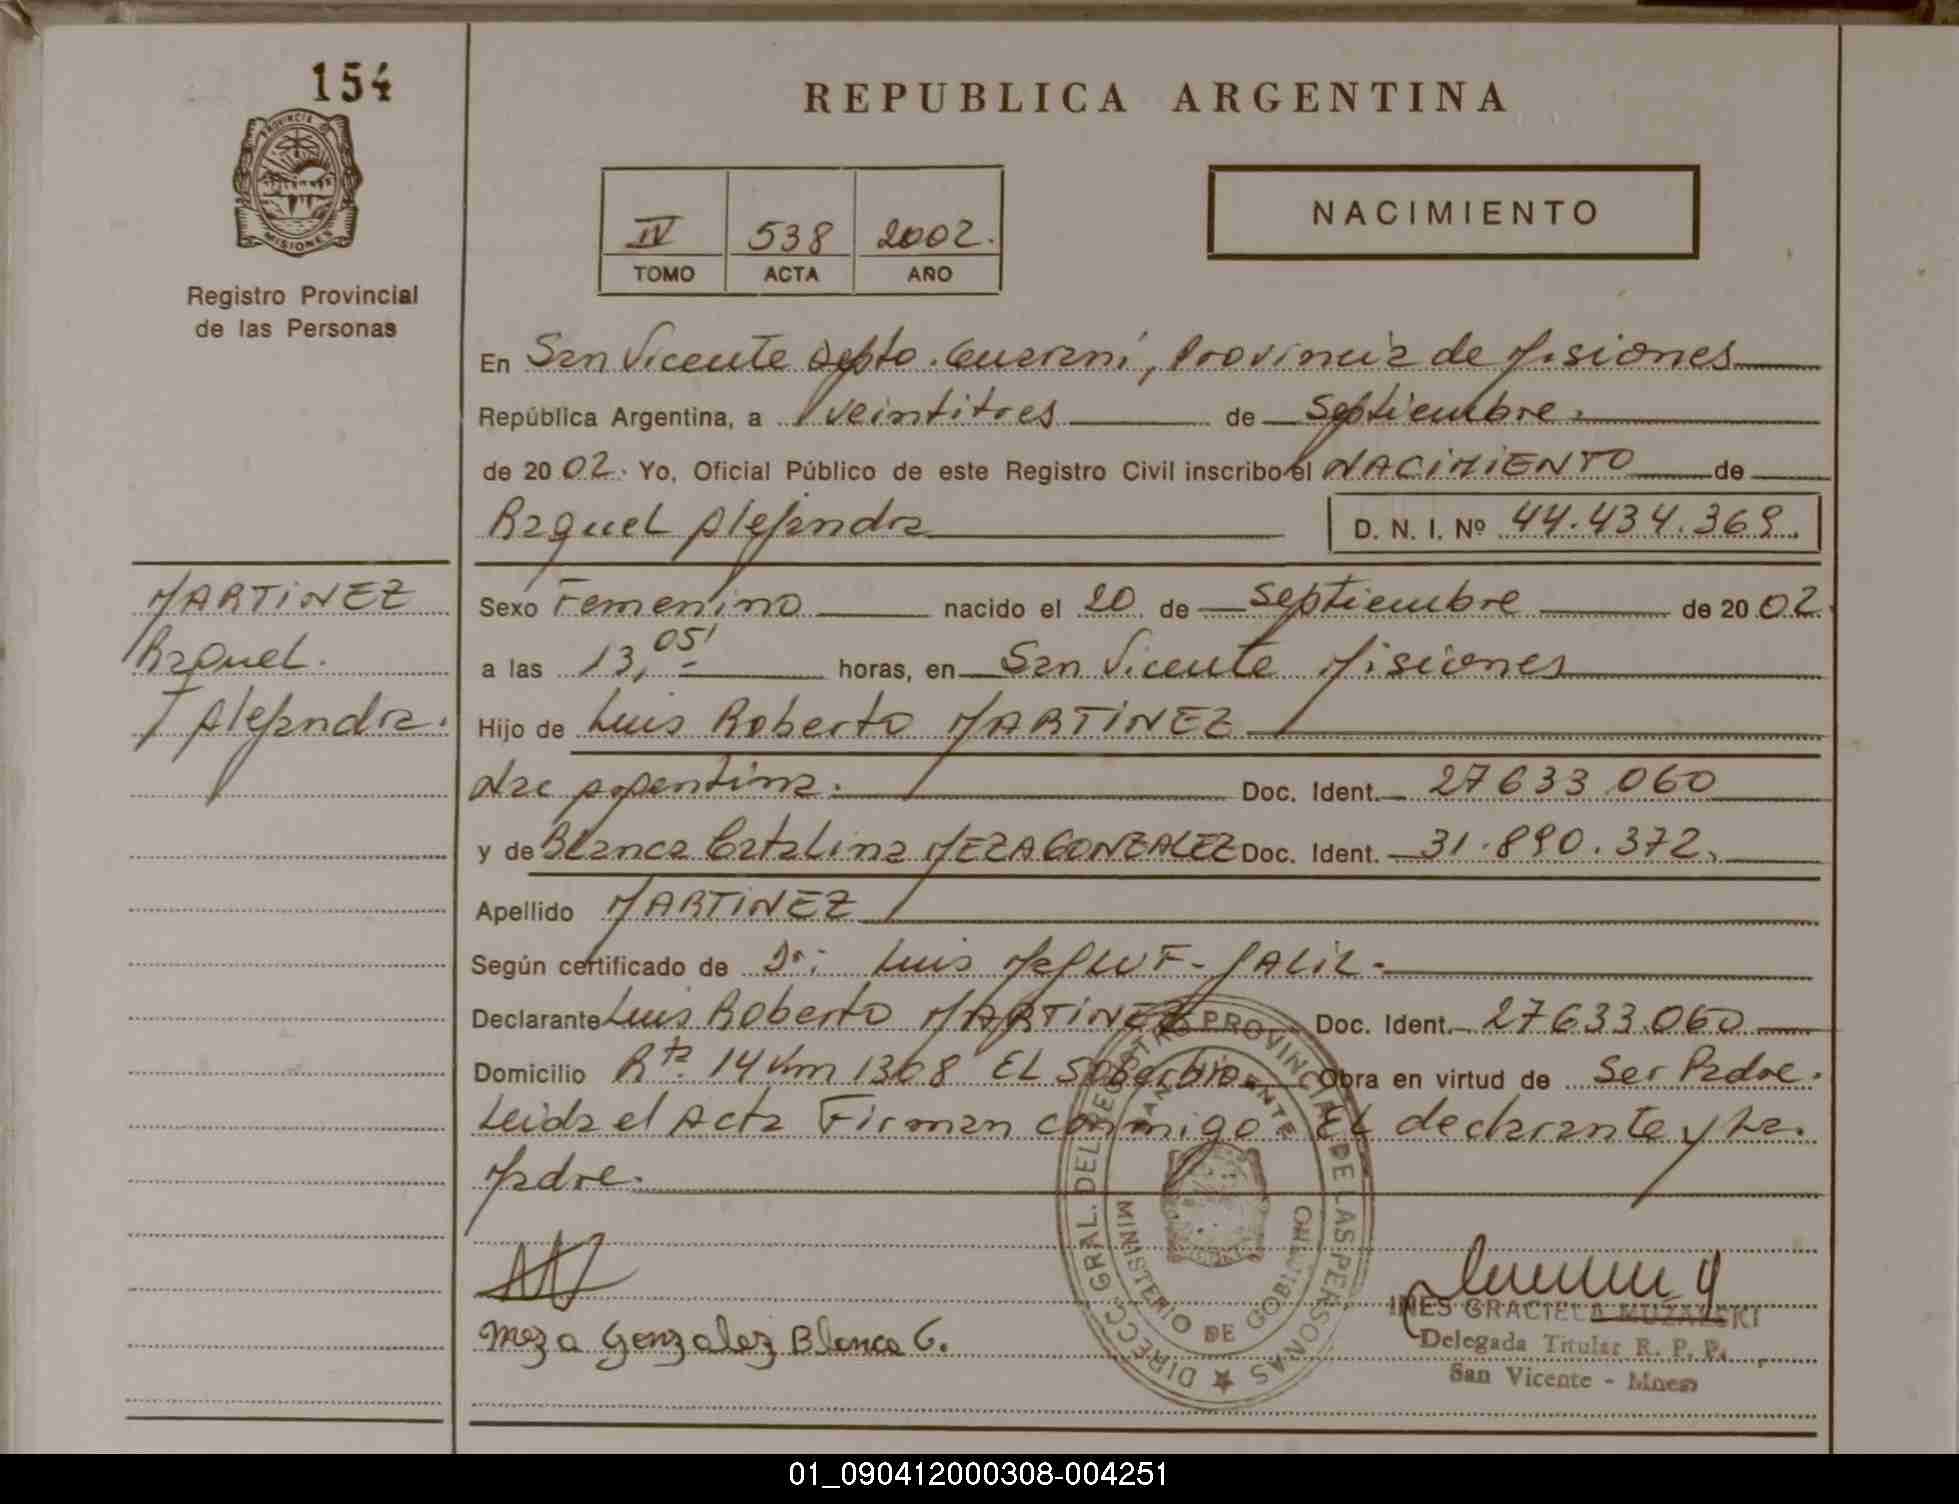 154
PROVINCIA DE
MISIONES
Registro Provincial
de las Personas
MARTINEZ
Raquel
Alejandra.
REPUBLICA ARGENTINA
IV 538 2002.
TOMO ACTA AÑO
NACIMIENTO
En San Vicente Depto. Guaraní, Provincia de Misiones
República Argentina, a veintitres de Septiembre.
de 20 02. Yo, Oficial Público de este Registro Civil inscribo el NACIMIENTO de
Raquel Alejandra D. N. I. Nº 44.434.369.
Sexo Femenino nacido el 20 de Septiembre de 20 02.
a las 13,05' horas, en San Vicente Misiones
Hijo de Luis Roberto MARTINEZ
Nac argentina. Doc. Ident. 27633.060
y de Blanca Catalina MEZA GONZALEZ Doc. Ident. 31.890.372.
Apellido MARTINEZ
Según certificado de Dr: Luis JALIL-
Declarante Luis Roberto MARTINEZ Doc. Ident. 27633.060
Domicilio Rta. 14 Km 1308 EL Soberbio Obra en virtud de Ser Padre.
Leida el Acta Firman conmigo EL declarante y La.
Madre.
DIRECC. GRAL. DEL REGISTRO PROVINCIAL DE LAS PERSONAS
SAN VICENTE
MINISTERIO DE GOBIERNO
Meza Gonzalez Blanca C.
INES GRACIELA MUZALSKI
Delegada Titular R. P. P.
San Vicente - Mnes
01_090412000308-004251